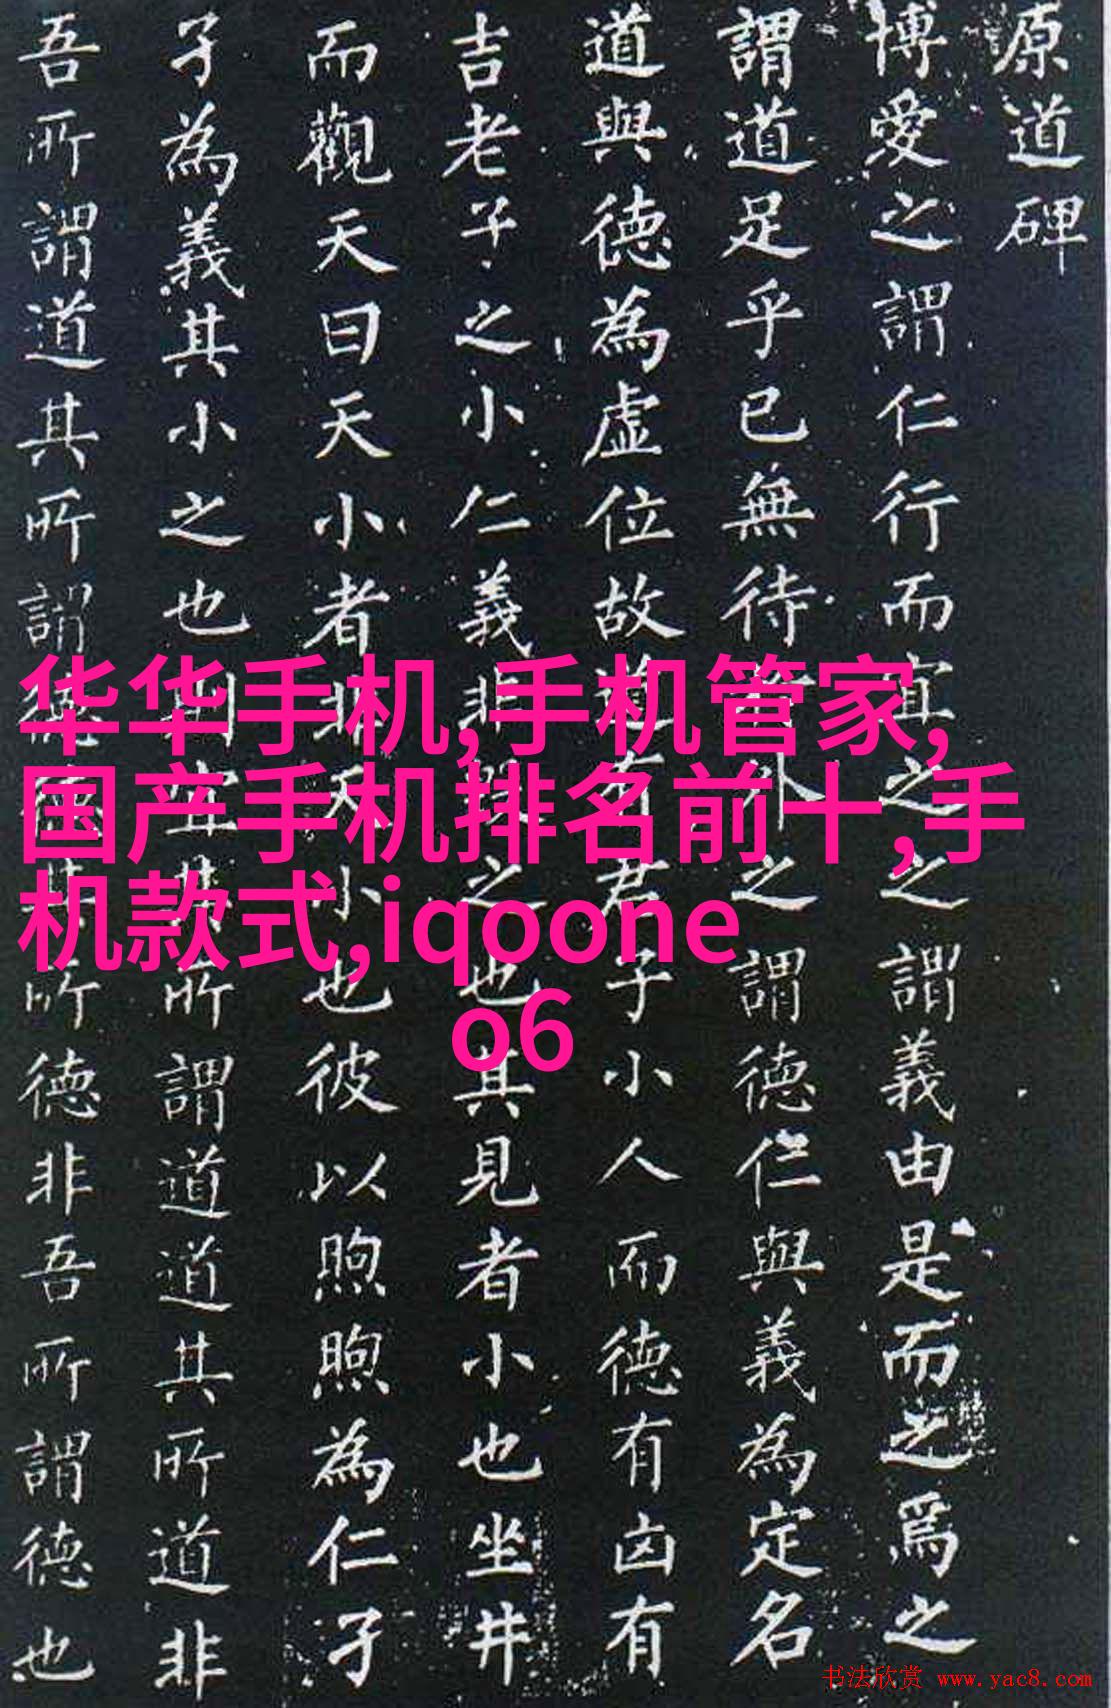 原道碑
博愛之謂仁行而宜之之謂義由是而之焉之
謂道足乎已無待外之謂德仁與義為定名
道與德為虛位故道有君子小人而德有凶有
吉老子之小仁義非毀之也其見者小也坐井
而觀天曰天小者非天小也彼以煦煦為仁孑
孑為義其小之也則宜其所謂道道其所道非
吾所謂道其所謂德德其所德非吾所謂德也
华华手机,手机管家,
国产手机排名前十,手
机款式,iqoone
o6
书法欣赏 www.yac8.com